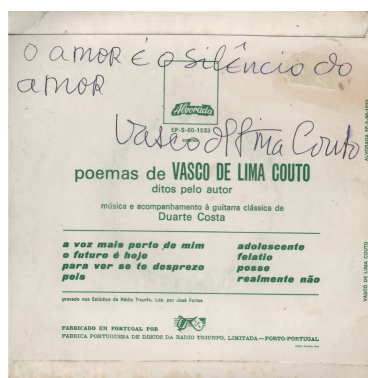 O AMOR É O SILÊNCIO DO
AMOR
Alvorada
EP-S-60-1533
Vasco de Lima Couto
poemas de VASCO DE LIMA COUTO
ditos pelo autor
música e acompanhamento à guitarra clássica de
Duarte Costa
a voz mais perto de mim
o futuro é hoje
para ver se te desprezo
pois
adolescente
felatio
posse
realmente não
gravado nos Estúdios da Rádio Triunfo, Lda. por José Fortes
FABRICADO EM PORTUGAL POR
FABRICA PORTUGUESA DE DISCOS DA RÁDIO TRIUNFO, LIMITADA — PORTO-PORTUGAL
ALVORADA EP-S-60-1533
VASCO DE LIMA COUTO